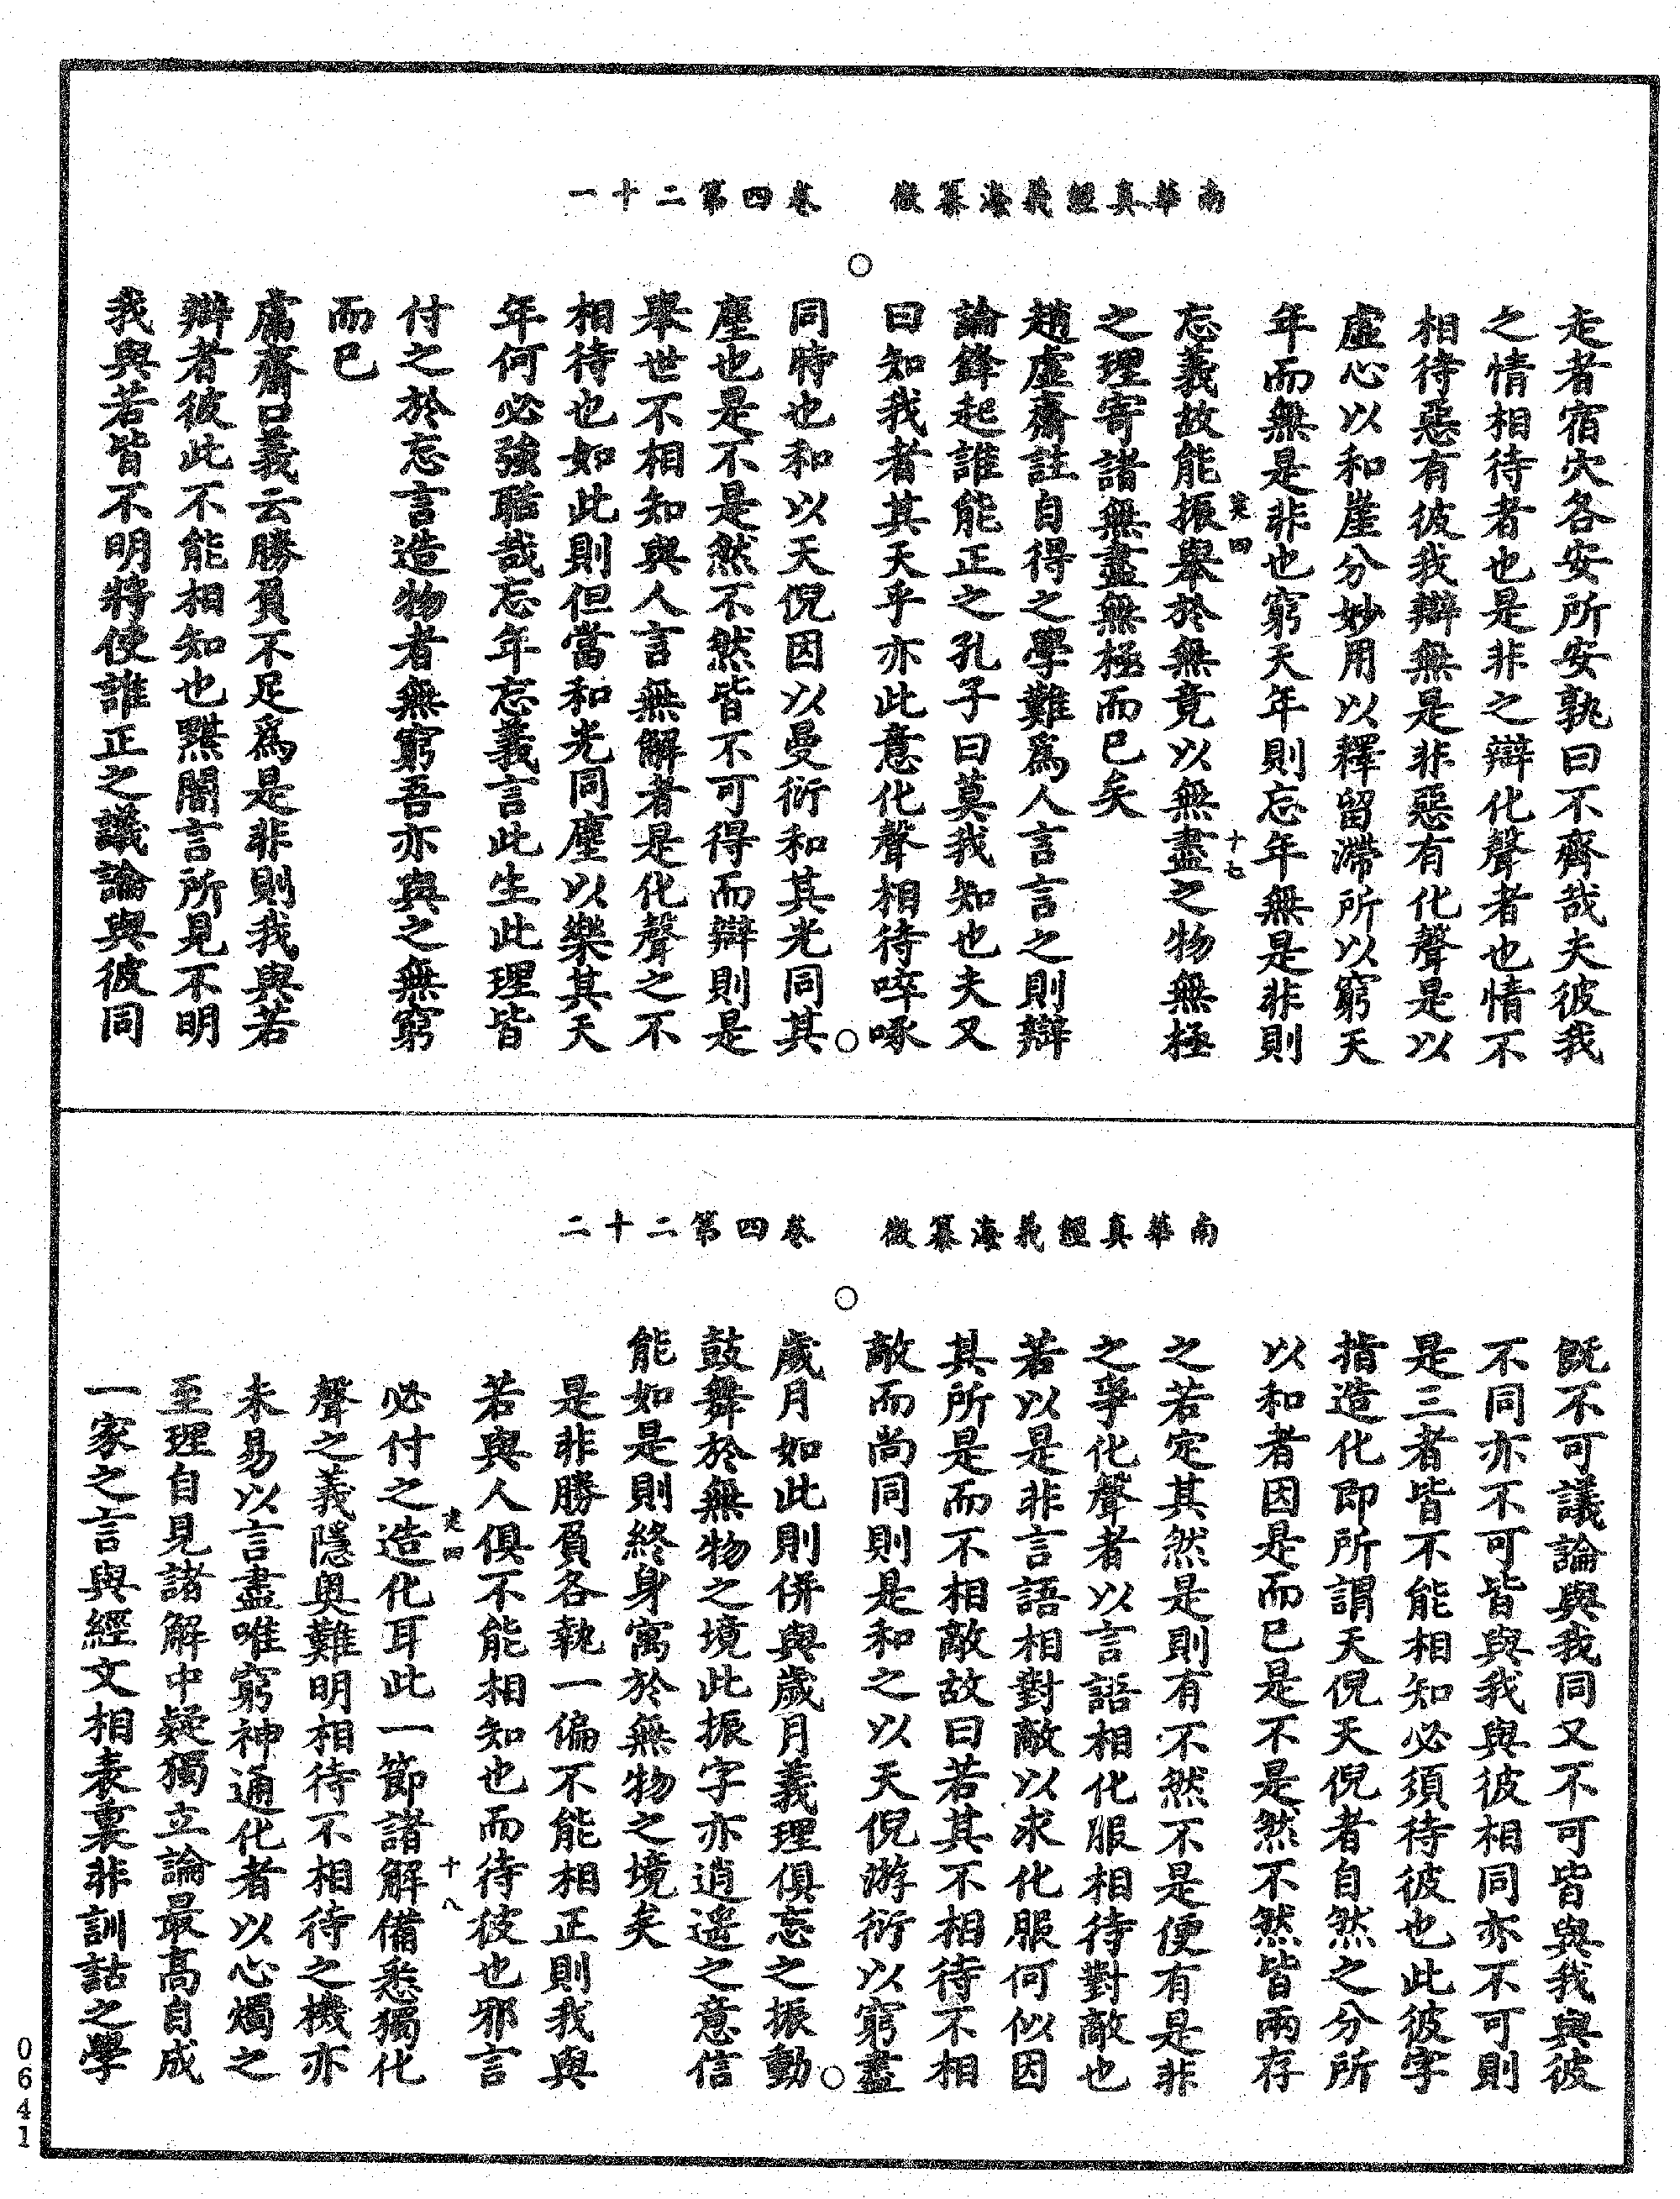 南華真經義海纂微　卷四第二十一
走者宿穴各安所安孰曰不齊哉夫彼我
之情相待者也是非之辯化聲者也情不
相待惡有彼我辯無是非惡有化聲是以
虛心以和崖分妙用以釋留滯所以窮天
年而無是非也窮天年則忘年無是非則
忘義故能振舉於無竟以無盡之物無極
之理寄諸無盡無極而已矣
趙虛齋註自得之學難為人言言之則辯
論鋒起誰能正之孔子曰莫我知也夫又
曰知我者其天乎亦此意化聲相待啐啄
同時也和以天倪因以曼衍和其光同其
塵也是不是然不然皆不可得而辯則是
舉世不相知與人言無解者是化聲之不
相待也如此則但當和光同塵以樂其天
年何必強聒哉忘年忘義言此生此理皆
付之於忘言造物者無窮吾亦與之無窮
而已
鬳齋口義云勝負不足為是非則我與若
辯者彼此不能相知也黮闇言所見不明
我與若皆不明將使誰正之議論與彼同
南華真經義海纂微　卷四第二十二
既不可議論與我同又不可皆與我與彼
不同亦不可皆與我與彼相同亦不可則
是三者皆不能相知必須待彼也此彼字
指造化即所謂天倪天倪者自然之分所
以和者因是而已是不是然不然皆兩存
之若定其然是則有不然不是便有是非
之爭化聲者以言語相化服相待對敵也
若以是非言語相對敵以求化服何似因
其所是而不相敵故曰若其不相待不相
敵而尚同則是和之以天倪游衍以窮盡
歲月如此則併與歲月義理俱忘之振動
鼓舞於無物之境此振字亦逍遙之意信
能如是則終身寓於無物之境矣
是非勝負各執一偏不能相正則我與
若與人俱不能相知也而待彼也邪言
必付之造化耳此一節諸解備悉獨化
聲之義隱奧難明相待不相待之機亦
未易以言盡唯窮神通化者以心燭之
至理自見諸解中疑獨立論最高自成
一家之言與經文相表裏非訓詁之學
0641